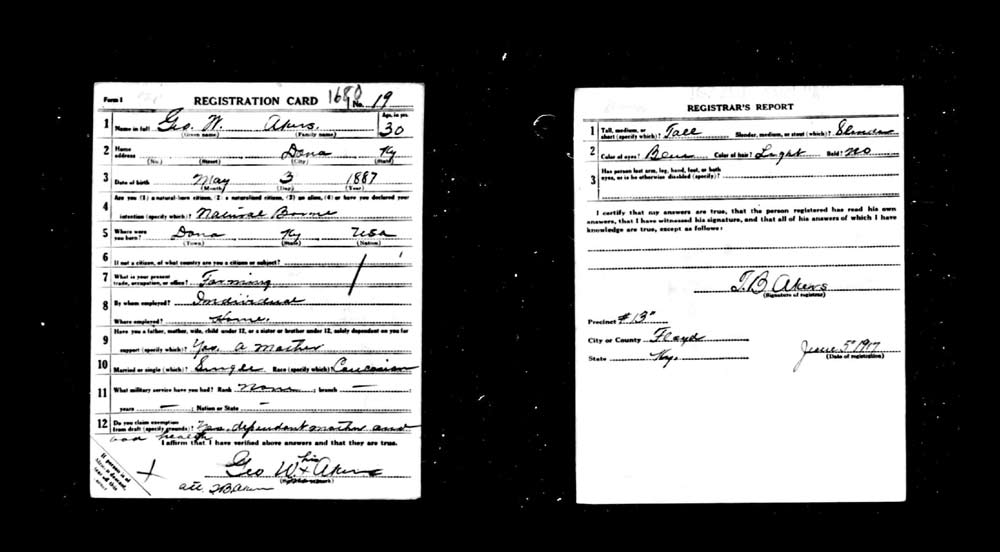 Form 1 REGISTRATION CARD 1680 No. 19
1 Name in full Geo. W. Akers. Age, in yrs. 30
(Given name) (Family name)
2 Home address Dona Ky
(No.) (Street) (City) (State)
3 Date of birth May 3 1887
(Month) (Day) (Year)
4 Are you (1) a natural-born citizen, (2) a naturalized citizen, (3) an alien, (4) or have you declared your
intention (specify which)? Natural Borne
5 Where were you born? Dona Ky USA
(Town) (State) (Nation)
6 If not a citizen, of what country are you a citizen or subject?
7 What is your present trade, occupation, or office? Farming
8 By whom employed? Individual
Where employed? Home.
9 Have you a father, mother, wife, child under 12, or a sister or brother under 12, solely dependent on you for
support (specify which)? Yes. a Mother
10 Married or single (which)? Single Race (specify which)? Caucasian
11 What military service have you had? Rank None ; branch —
years — ; Nation or State —
12 Do you claim exemption from draft (specify grounds)? Yes, dependent mother and
bad health
I affirm that I have verified above answers and that they are true.
his
Geo W x Akers
(Signature or mark)
att. TB Akers
If person is of African descent, tear off this corner
REGISTRAR'S REPORT
1 Tall, medium, or short (specify which)? Tall Slender, medium, or stout (which)? Slender
2 Color of eyes? Color of hair? Light Bald? no
3 Has person lost arm, leg, hand, foot, or both eyes, or is he otherwise disabled (specify)?
I certify that my answers are true, that the person registered has read his own
answers, that I have witnessed his signature, and that all of his answers of which I have
knowledge are true, except as follows:
T. B Akers
(Signature of registrar)
Precinct #13"
City or County Floyd
State Ky. June 5" 1917
(Date of registration)